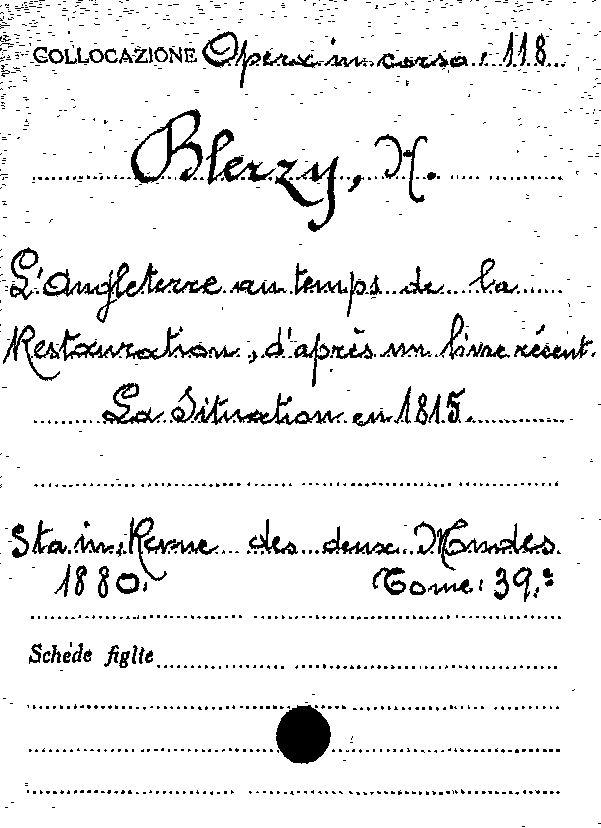 COLLOCAZIONE Opera in corso: 118
Blerzy, H.
L'Angleterre au temps de la
Restauration, d'après un livre récent.
La Situation en 1815.
Sta in: Revue des deux Mondes
1880. Tome: 39.º
Schede figlie